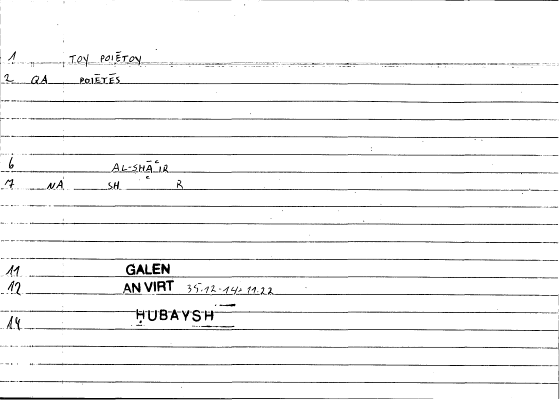 1 TOY POIĒTOY
2 QA POIĒTĒS
6 AL-SHĀʿIR
7 NA SH ʿ R
11 GALEN
12 AN VIRT 35.12-14=11.22
14 ḤUBAYSH